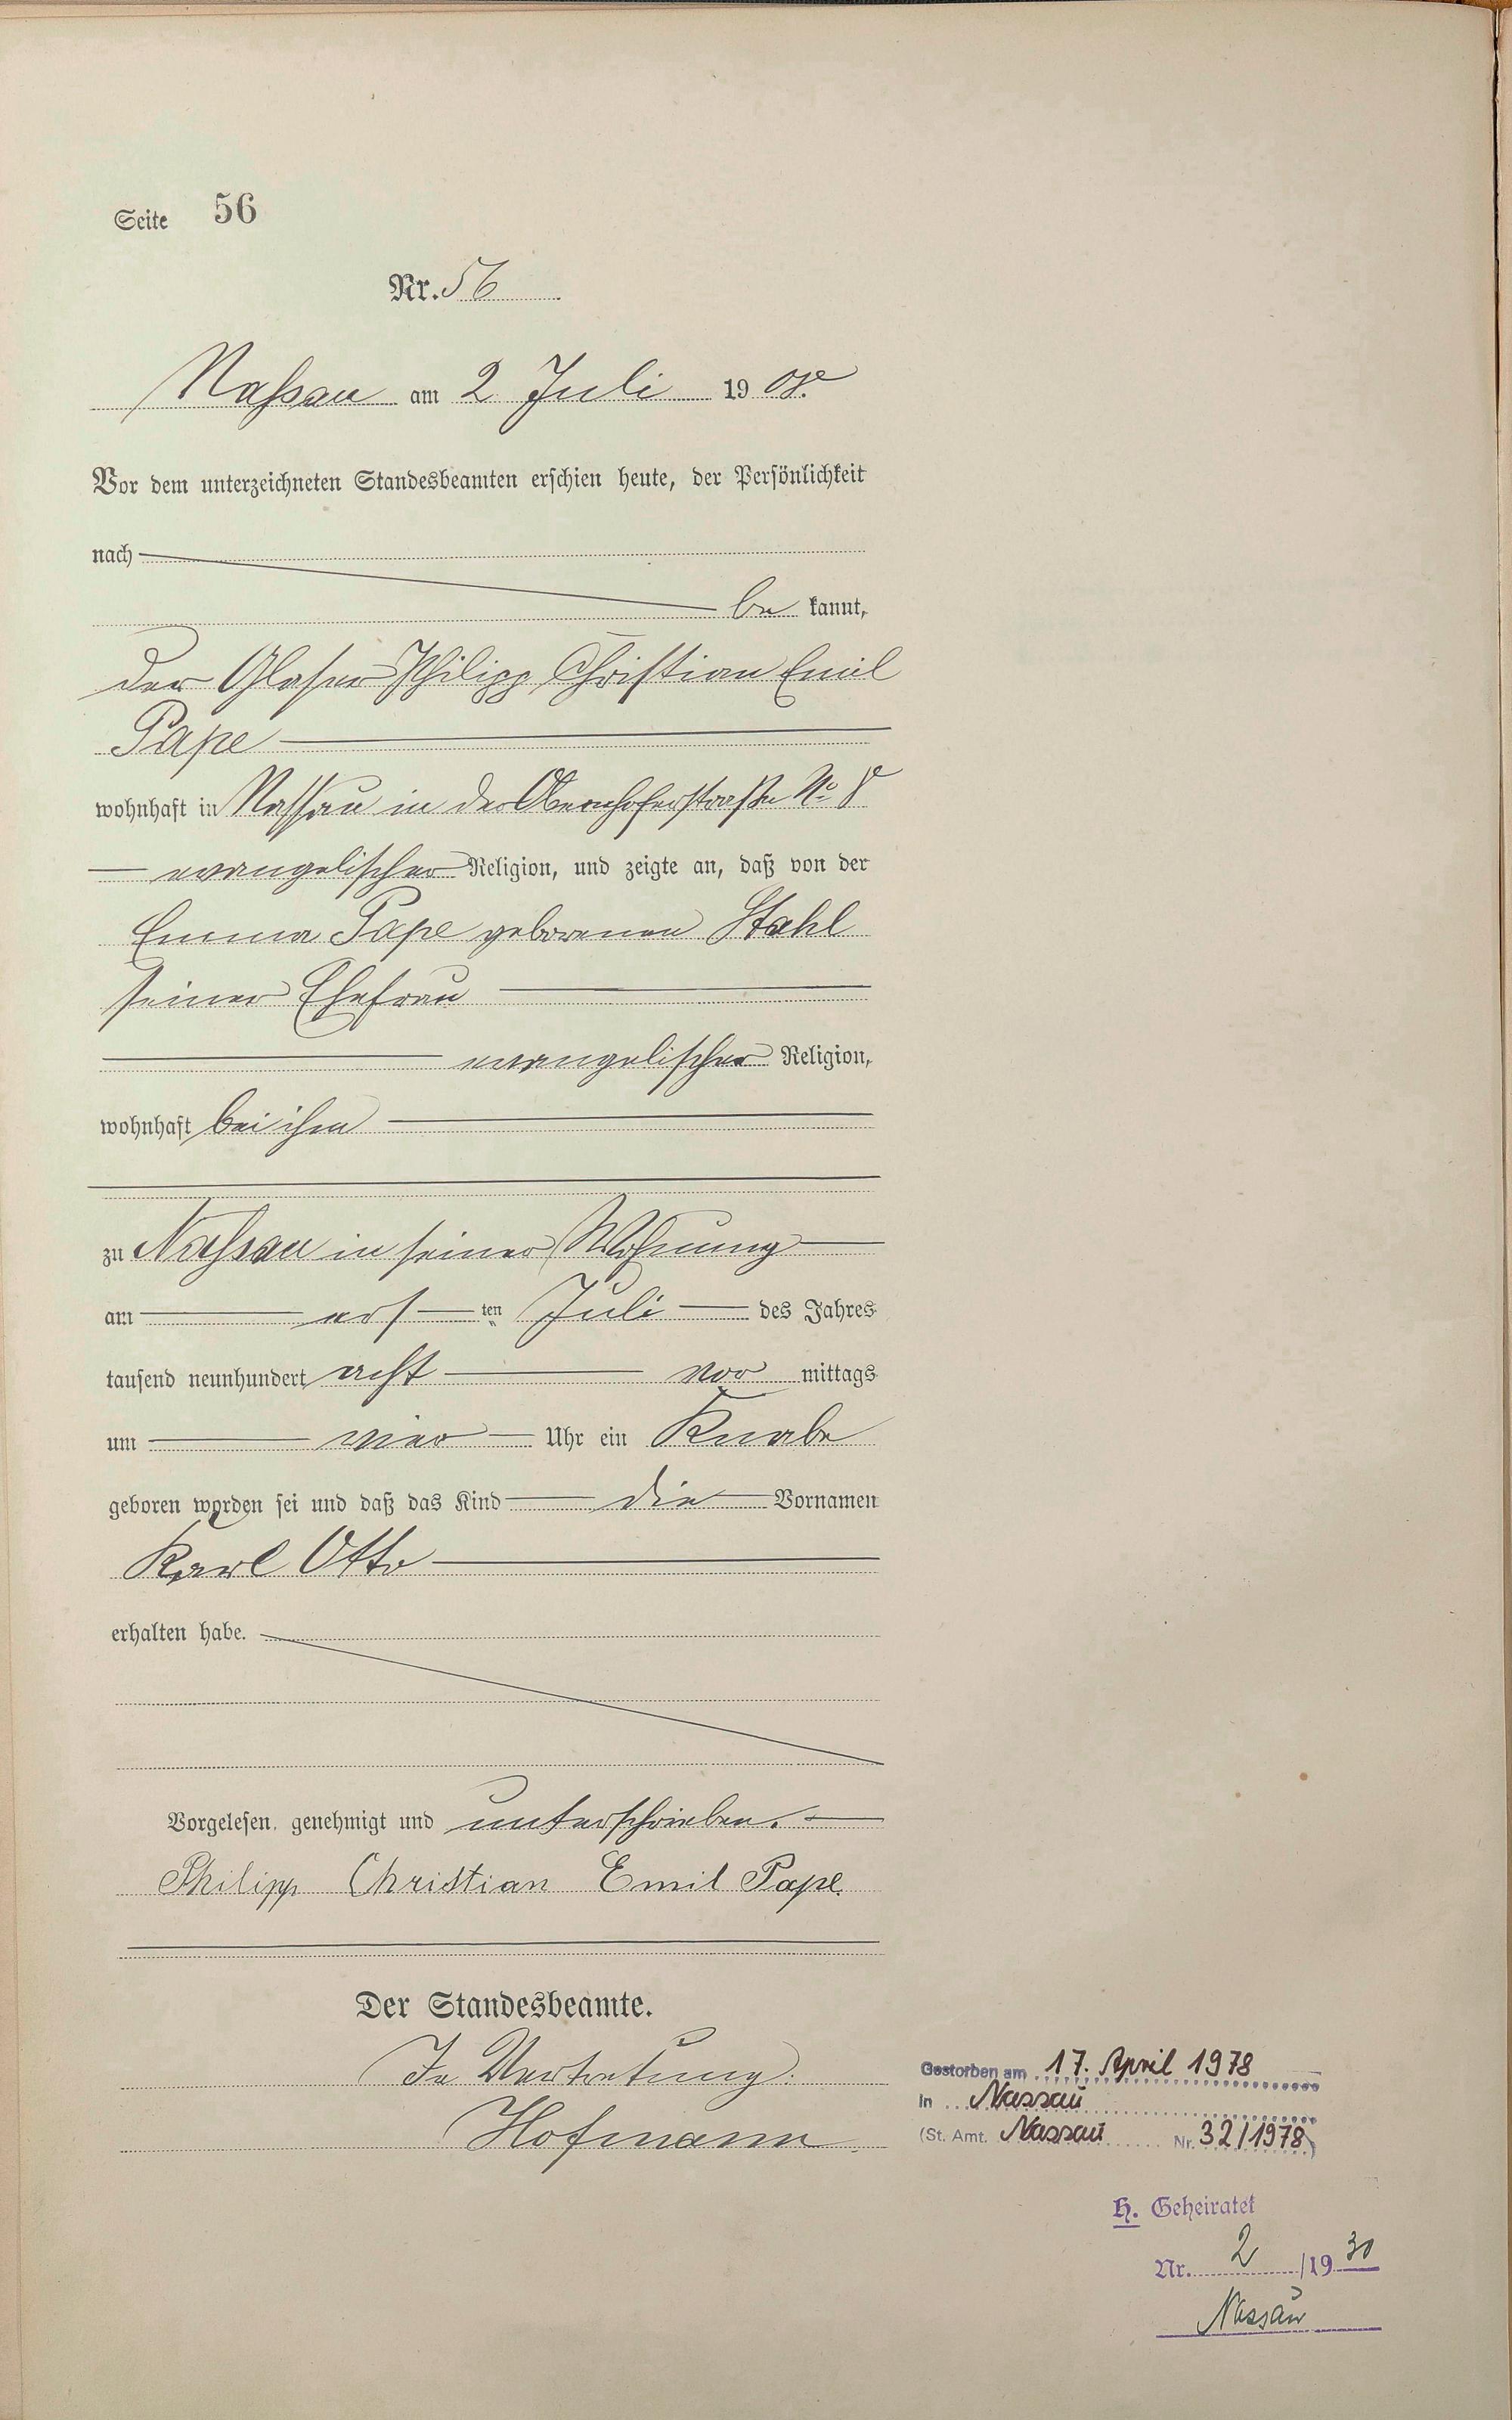 Seite 56
Nr. 56
Nassau am 2 Juli 1908.
Vor dem unterzeichneten Standesbeamten erschien heute, der Persönlichkeit
nach
be kannt,
der Glaser Philipp Christian Emil
Pape
wohnhaft in Nassau in der Obernhoferstraße No 8
evangelischer Religion, und zeigte an, daß von der
Emma Pape geborenen Stahl
seiner Ehefrau
evangelischer Religion,
wohnhaft bei ihm
zu Nassau in seiner Wohnung
am ers ten Juli des Jahres
tausend neunhundert acht vor mittags
um vier Uhr ein Knabe
geboren worden sei und daß das Kind die Vornamen
Karl Otto
erhalten habe.
Vorgelesen, genehmigt und unterschrieben.
Philipp Christian Emil Pape.
Der Standesbeamte.
In Vertretung.
Hofmann.
Gestorben am 17. April 1978
in Nassau
(St. Amt. Nassau Nr. 32/1978)
H. Geheiratet
Nr. 2 /1930
Nassau